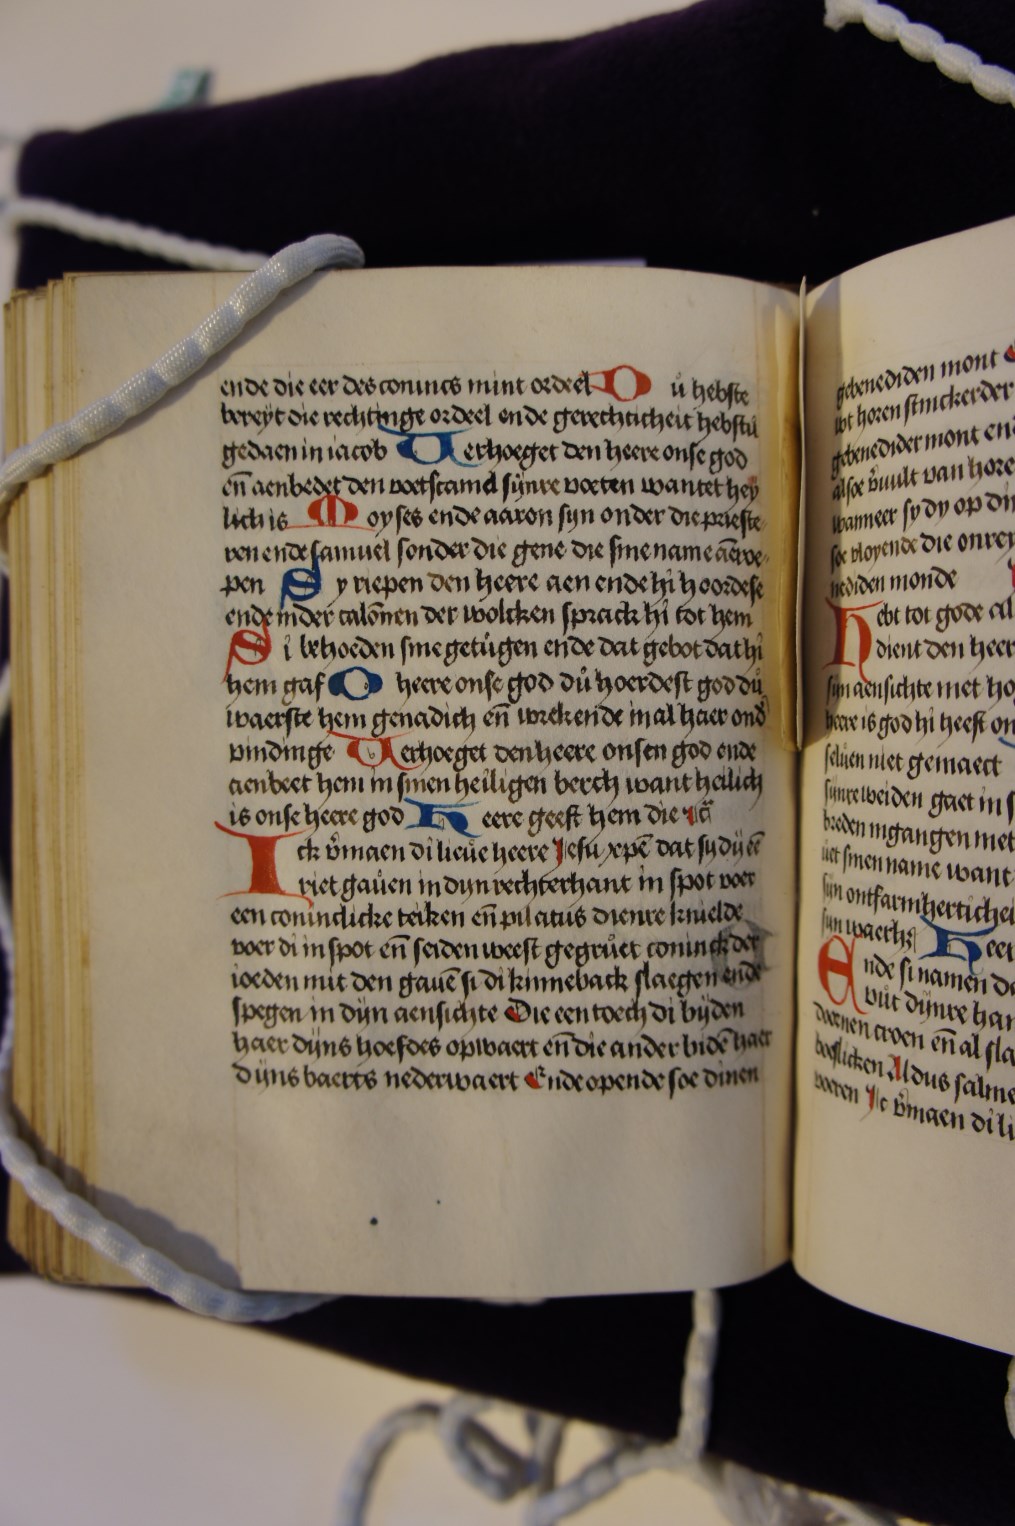 ende die eer des conincs mint ordeel Dů hebste
bereyt die rechtinge ordeel ende gerechticheit hebstu
gedaen in iacob Verhoeget den heere onse god
en̄ aenbedet den voetscamel sijnre voeten want et hey
lich is Moyses ende aaron sijn onder die prieste
ren ende samuel sonder die gene die sine name aēroe
pen Sy riepen den heere aen ende hi hoordese
ende inder calōnen der wolcken sprack hi tot hem
Si behoeden sine getugen ende dat gebot dat hi
hem gaf O heere onse god du hoerdest god du
waerste hem genadich en̄ wrekende in al haer ond
vindinge Verhoeget den heere onsen god ende
aenbeet hem in sinen heiligen berch want heilich
is onse heere god Heere geeft hem die
Ick v̄maen di lieue heere Jesu xp̄e dat sy dij ee
riet gauen in dyn rechterhant in spot voer
een coninclicke teiken en̄ pilatus dienre knielde
voer di in spot en̄ seiden weest gegruet coninck der
ioeden mit den gauē si di kinneback slaegen ende
spegen in dijn aensichte Die een toech di bijden
haer dijns hoefdes opwaert en̄ die ander bidē haer
dijns baerts nederwaert Ende opende soe dinen
gebenediden mont
wt horen stinckerder
gebenedider mont en
alsoe v̄vult van hore
wanneer sy dy op din
soe vloyende die onrey
nediden monde
Hebt tot gode al
dient den heer
sijn aensichte met ho
heere is god hi heeft on
seluen niet gemaect
sijnre weiden gaet in s
breden ingangen met
uet sinen name want
sijn ontfarmhertichei
sijn waerh Heer
Ende si namen de
vut dijnre han
doernen croen en̄ al sla
boeslicken Aldus salme
voeren Ic v̄maen di li